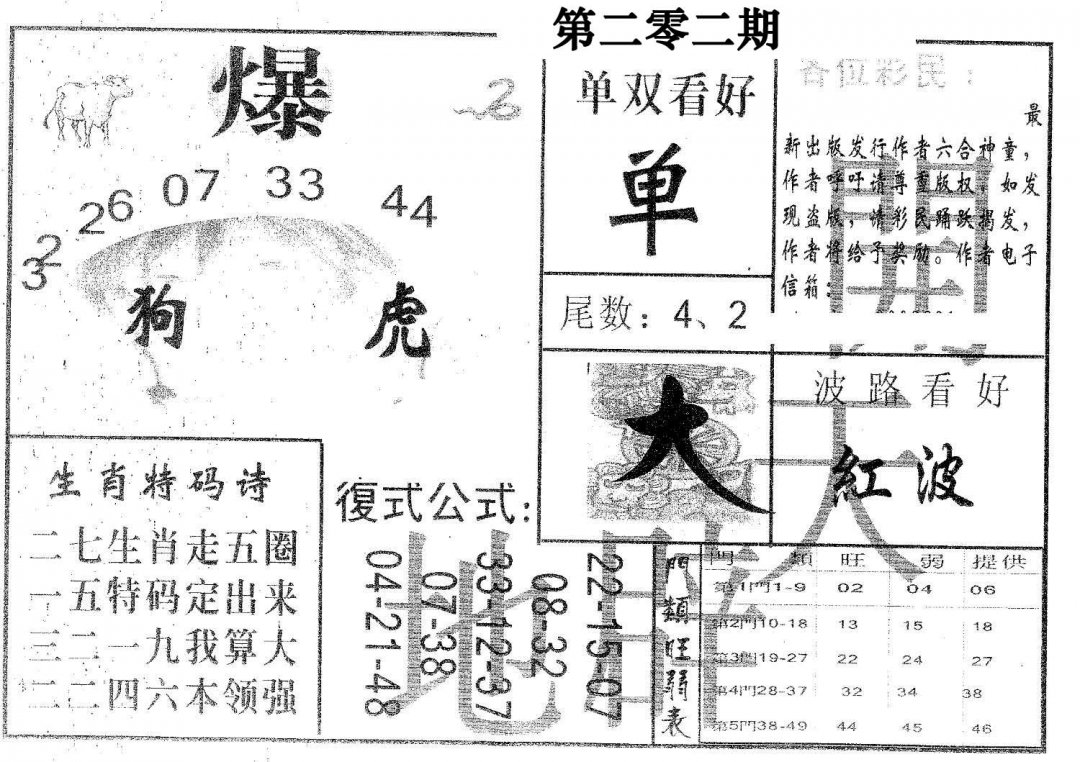 第二零二期
爆
26 07 33 44
狗 虎
单双看好
单
尾数：4、2
各位彩民：
最
新出版发行作者六合神童，
作者呼吁请尊重版权，如发
现盗版，情彩民踊跃揭发，
作者将给予奖励。作者电子
信箱：
大
波路看好
紅波
生肖特码诗
二七生肖走五圈
一五特码定出来
三二一九我算大
二二四六本领强
復式公式：
04-21-48
07-38
33-12-37
08-32
22-15-07
門類旺弱表
門類 旺 弱 提供
第1門1-9 02 04 06
第2門10-18 13 15 18
第3門19-27 22 24 27
第4門28-37 32 34 38
第5門38-49 44 45 46